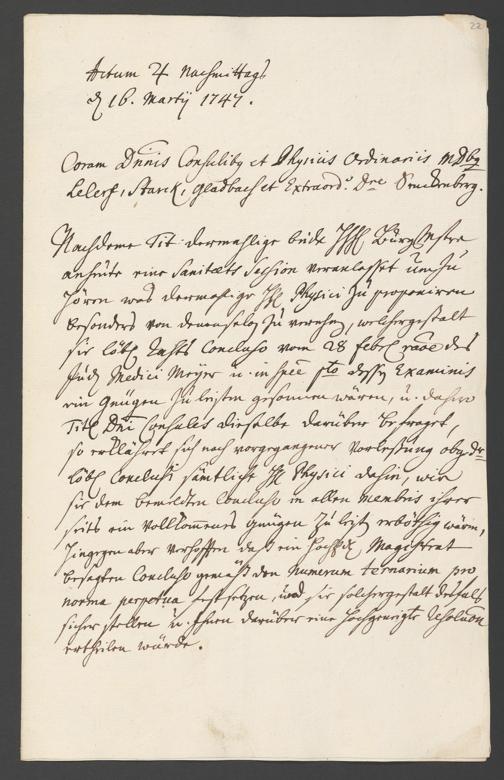 22
Actum 4 Nachmittags
d 16. Martij 1747.
Coram Dnnis Consulibq et Physicis Ordinariis MDbq
Lelers, Starck, Gladbach et Extraord. Dre Senckenberg.
Nachdeme Tit. dermahlige beide HH Burgermstre
anheute eine Sanitaets Session veranlasset um zu
hören was dermahlige HH Physici zu proponiren
besonders von denenselben zu vernehmen, welchergestalt
sie löbl. Raths Concluso vom 28 Febr. raoe des
Jud. Medici Meyer u. in spec pto dessen Examinis
ein Genügen zu leisten gesonnen wären, u. dahero
Titl Dni Consules dieselbe darüber befraget,
so erklähret sich nach vorgegangener Vorlesung obg.
löbl. Conclusi sämtliche HH Physici dahin, wie
sie dem bemeldten Concluso in allen Membris ihrer
seits ein vollkommenes Genügen zu leisten erböthig wären,
hingegen aber verhoffen daß ein Magistrat
besagten Concluso gemäß den Numerum ternarium pro
norma perpetua festsetzen, und sie solchergestalt desfals
sicher stellen u. Ihnen darüber eine hochgeneigte Resolution
ertheilen würde.